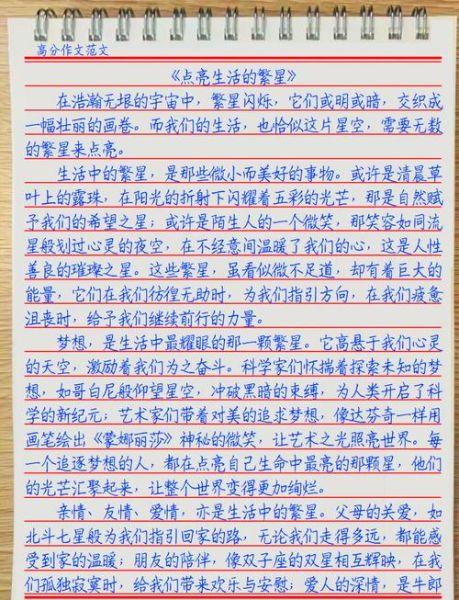 高分作文范文
《点亮生活的繁星》
在浩瀚无垠的宇宙中，繁星闪烁，它们或明或暗，交织成
一幅壮丽的画卷。而我们的生活，也恰似这片星空，需要无数
的繁星来点亮。
生活中的繁星，是那些微小而美好的事物。或许是清晨草
叶上的露珠，在阳光的折射下闪耀着五彩的光芒，那是自然赋
予我们的希望之星；或许是陌生人的一个微笑，那笑容如同流
星般划过心灵的夜空，在不经意间温暖了我们的心，这是人性
善良的璀璨之星。这些繁星，虽看似微不足道，却有着巨大的
能量，它们在我们彷徨无助时，为我们指引方向，在我们疲惫
沮丧时，给予我们继续前行的力量。
梦想，是生活中最耀眼的那一颗繁星。它高悬于我们心灵
的天空，激励着我们为之奋斗。科学家们怀揣着探索未知的梦
想，如哥白尼般仰望星空，冲破黑暗的束缚，为人类开启了科
学的新纪元；艺术家们带着对美的追求梦想，像达芬奇一样用
画笔绘出《蒙娜丽莎》神秘的微笑，让艺术之光照亮世界。每
一个追逐梦想的人，都在点亮自己生命中最亮的那颗星，他们
的光芒汇聚起来，让整个世界变得更加绚烂。
亲情、友情、爱情，亦是生活中的繁星。父母的关爱，如
北斗七星般为我们指引回家的路，无论我们走得多远，都能感
受到家的温暖；朋友的陪伴，像双子座的双星相互辉映，在我
们孤独寂寞时，给我们带来欢乐与安慰；爱人的深情，是牛郎